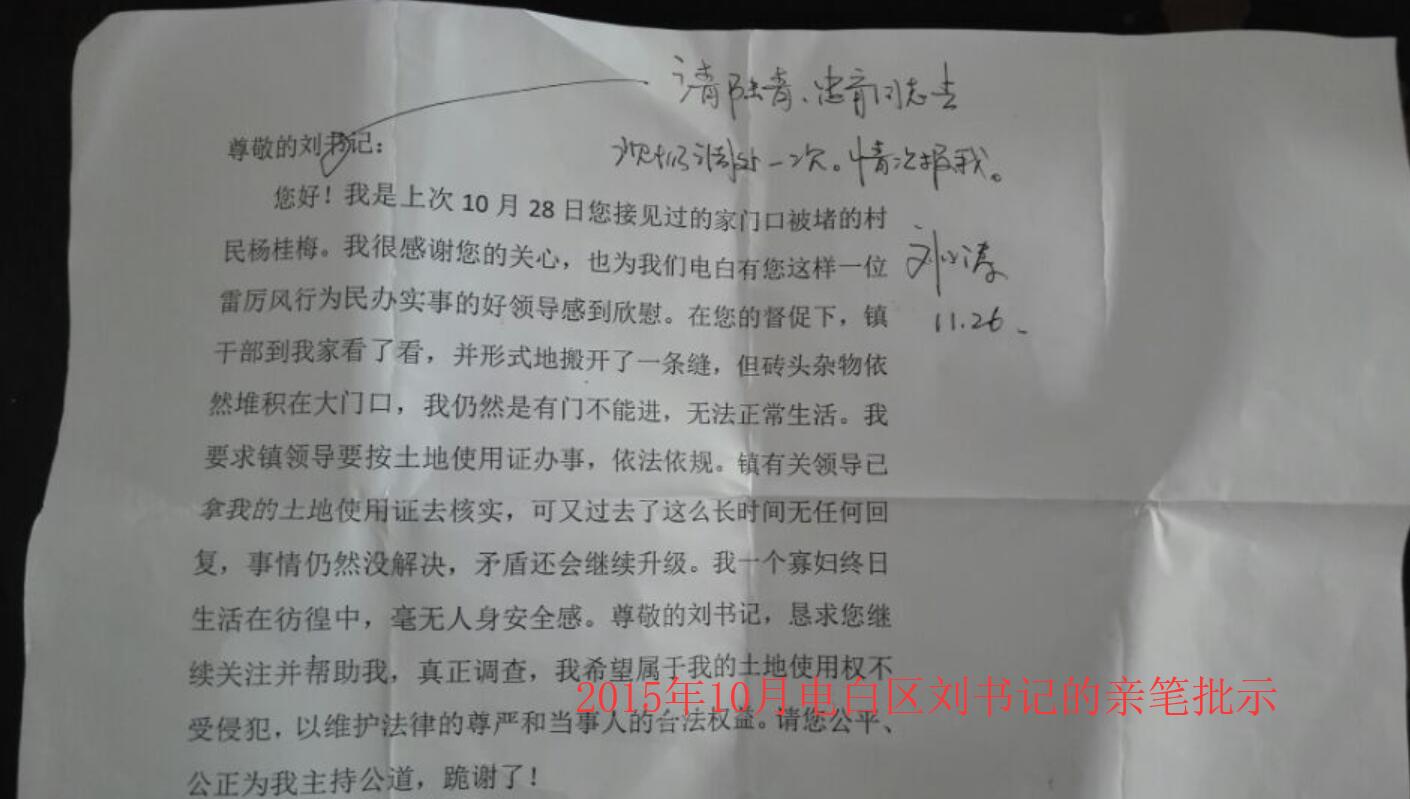 请 、 同志去
现场调处一次。情况报我。
尊敬的刘书记：
您好！我是上次 10 月 28 日您接见过的家门口被堵的村
民杨桂梅。我很感谢您的关心，也为我们电白有您这样一位
刘小涛
雷厉风行为民办实事的好领导感到欣慰。在您的督促下，镇
11.26
干部到我家看了看，并形式地搬开了一条缝，但砖头杂物依
然堆积在大门口，我仍然是有门不能进，无法正常生活。我
要求镇领导要按土地使用证办事，依法依规。镇有关领导已
拿我的土地使用证去核实，可又过去了这么长时间无任何回
复，事情仍然没解决，矛盾还会继续升级。我一个寡妇终日
生活在彷徨中，毫无人身安全感。尊敬的刘书记，恳求您继
续关注并帮助我，真正调查，我希望属于我的土地使用权不
2015年10月电白区刘书记的亲笔批示
受侵犯，以维护法律的尊严和当事人的合法权益。请您公平、
公正为我主持公道，跪谢了！